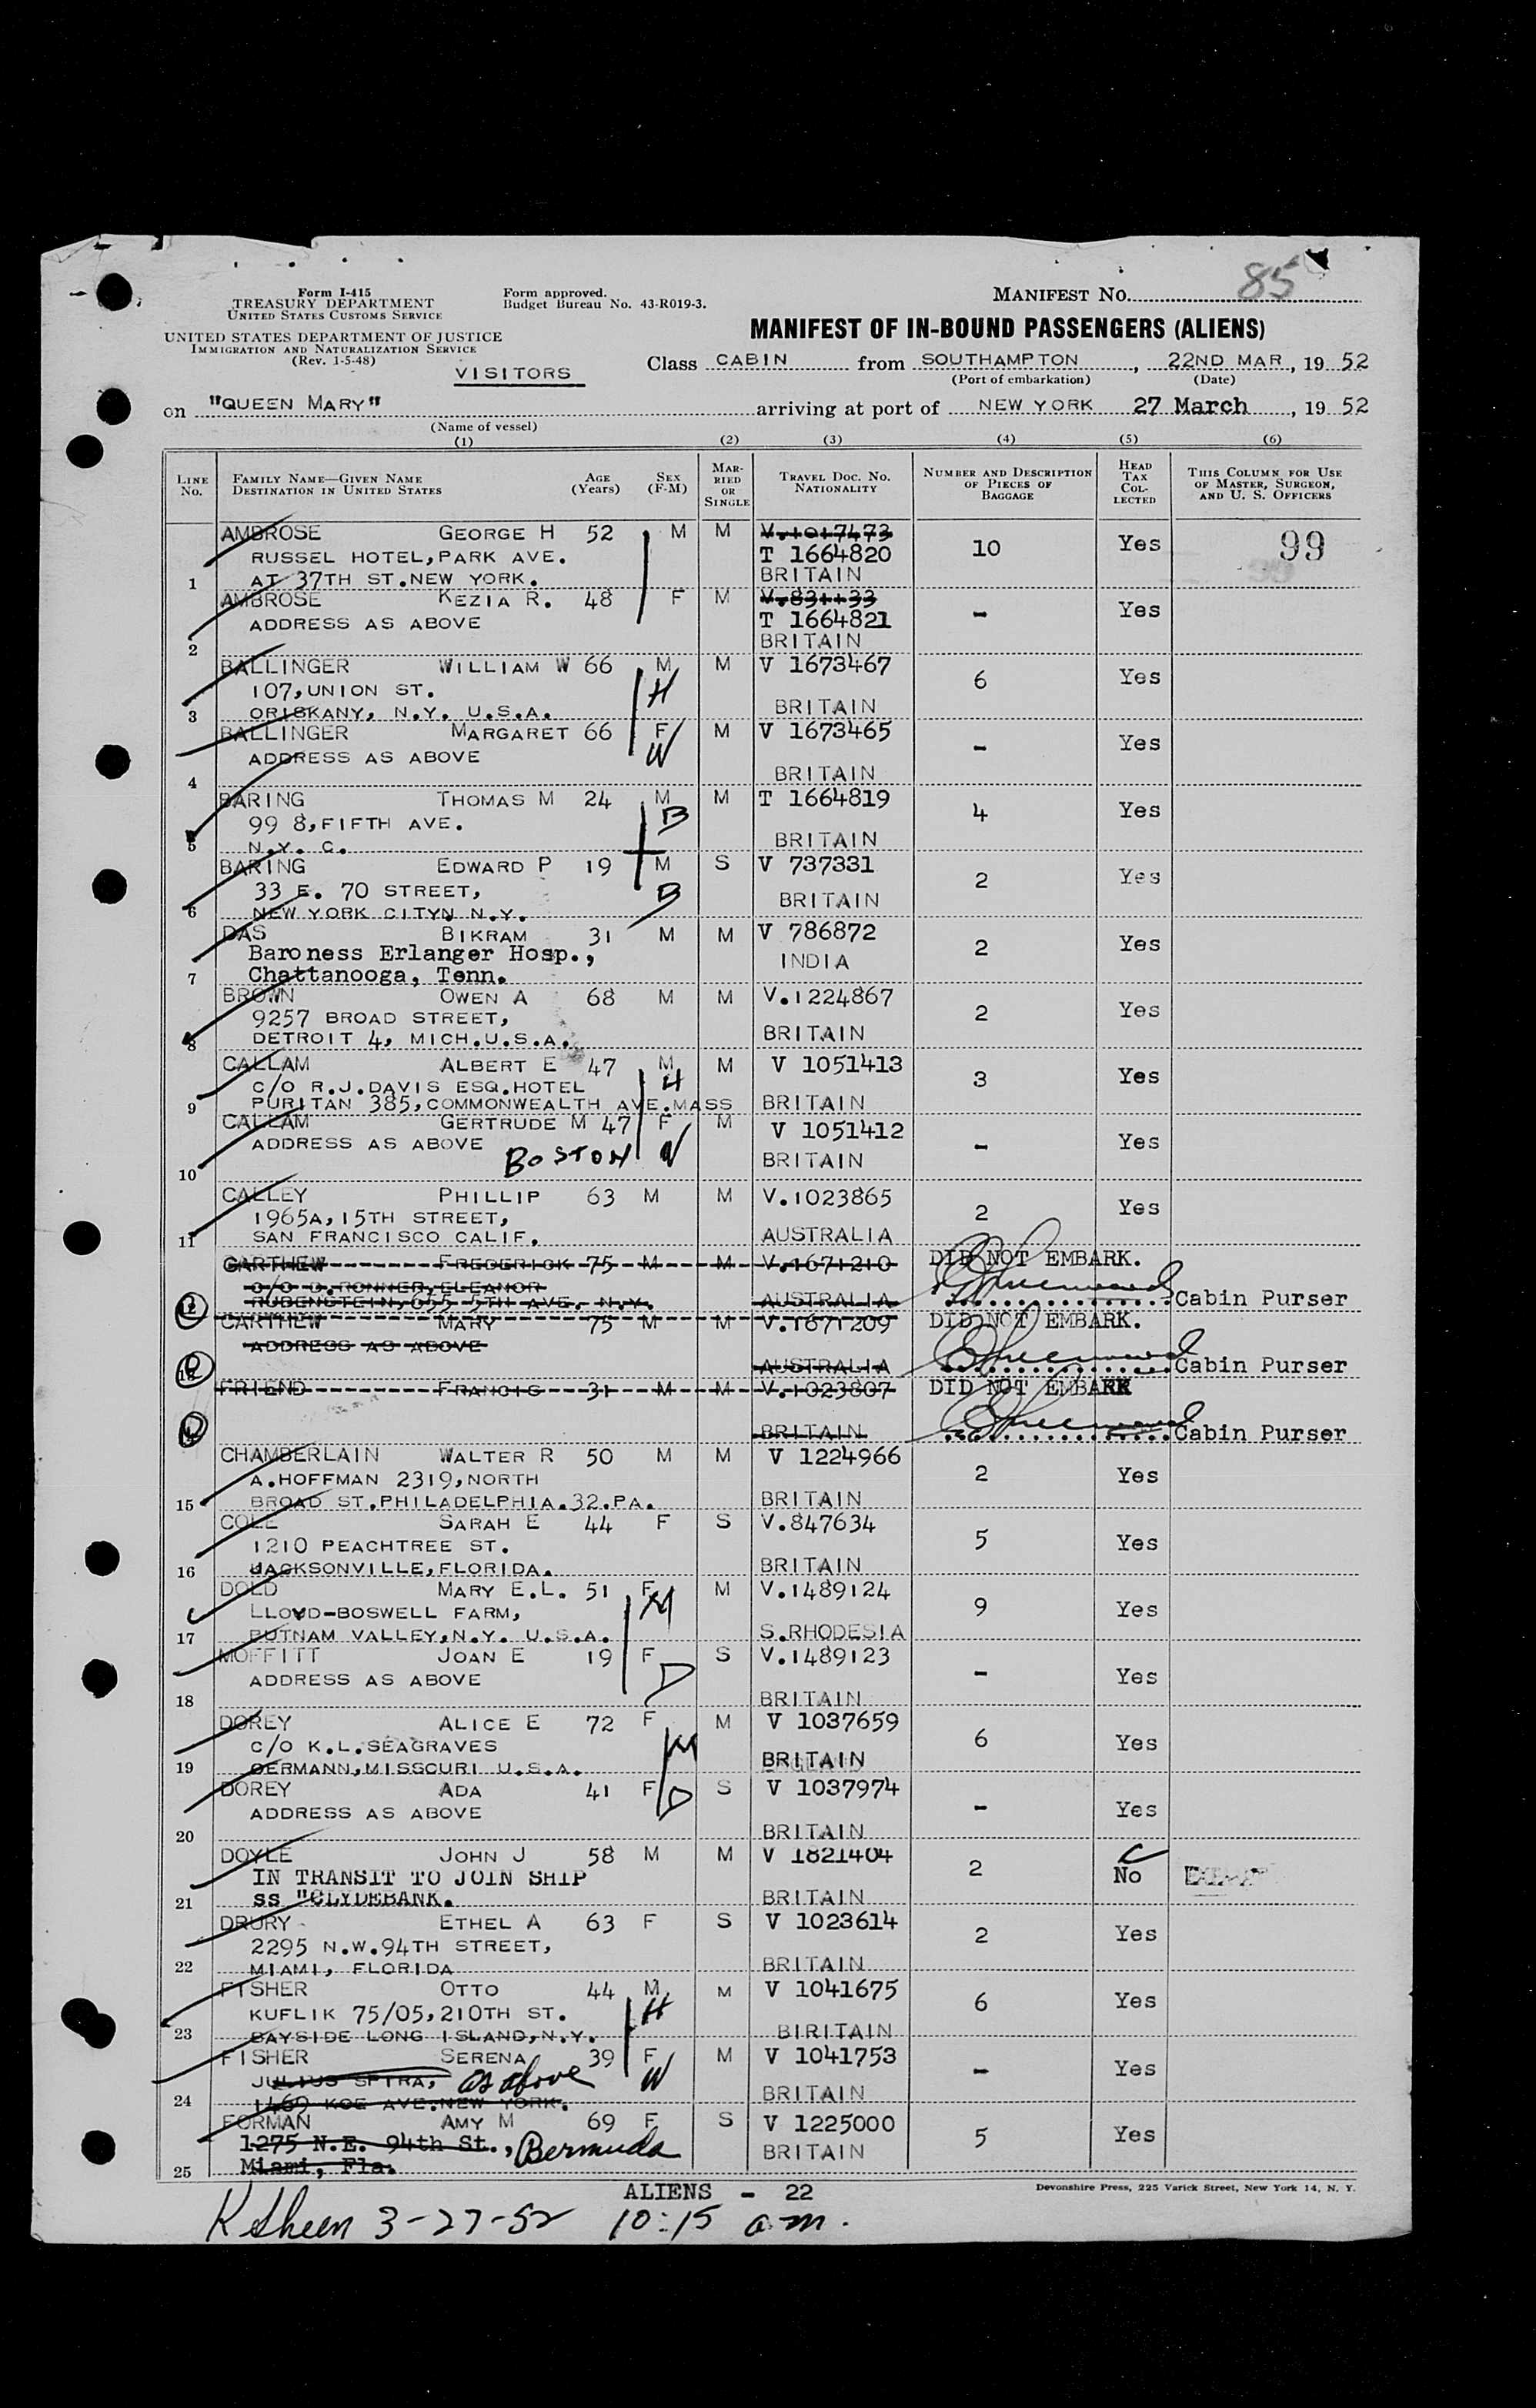 85
Form I-415
TREASURY DEPARTMENT
UNITED STATES CUSTOMS SERVICE
UNITED STATES DEPARTMENT OF JUSTICE
IMMIGRATION AND NATURALIZATION SERVICE
(Rev. 1-5-48)
Form approved.
Budget Bureau No. 43-R019-3.
MANIFEST NO.
MANIFEST OF IN-BOUND PASSENGERS (ALIENS)
VISITORS
Class CABIN from SOUTHAMPTON, 22ND MAR, 19 52
(Port of embarkation) (Date)
on "QUEEN MARY" arriving at port of NEW YORK 27 March, 19 52
(Name of vessel)
(1) (2) (3) (4) (5) (6)
LINE NO. FAMILY NAME—GIVEN NAME DESTINATION IN UNITED STATES AGE (Years) SEX (F-M) MARRIED OR SINGLE TRAVEL DOC. NO. NATIONALITY NUMBER AND DESCRIPTION OF PIECES OF BAGGAGE HEAD TAX COLLECTED THIS COLUMN FOR USE OF MASTER, SURGEON, AND U. S. OFFICERS
AMBROSE GEORGE H 52 M M V.1017473
RUSSEL HOTEL, PARK AVE. T 1664820 10 Yes 99
1 AT 37TH ST. NEW YORK. BRITAIN
AMBROSE KEZIA R. 48 F M V.831133
ADDRESS AS ABOVE T 1664821 - Yes
2 BRITAIN
BALLINGER WILLIAM W 66 M M V 1673467
107, UNION ST. H 6 Yes
3 ORISKANY, N.Y. U.S.A. BRITAIN
BALLINGER MARGARET 66 F M V 1673465
ADDRESS AS ABOVE W - Yes
4 BRITAIN
BARING THOMAS M 24 M M T 1664819
99 8, FIFTH AVE. B 4 Yes
5 N.Y. C. BRITAIN
BARING EDWARD P 19 M S V 737331
33 E. 70 STREET, B 2 Yes
6 NEW YORK CITYN N.Y. BRITAIN
DAS BIKRAM 31 M M V 786872
Baroness Erlanger Hosp., INDIA 2 Yes
7 Chattanooga, Tenn.
BROWN OWEN A 68 M M V.1224867
9257 BROAD STREET, 2 Yes
8 DETROIT 4, MICH. U.S.A. BRITAIN
CALLAM ALBERT E 47 M M V 1051413
C/O R.J. DAVIS ESQ. HOTEL H 3 Yes
9 PURITAN 385, COMMONWEALTH AVE. MASS BRITAIN
CALLAM GERTRUDE M 47 F M V 1051412
ADDRESS AS ABOVE BOSTON W - Yes
10 BRITAIN
CALLEY PHILLIP 63 M M V.1023865
1965A, 15TH STREET, 2 Yes
11 SAN FRANCISCO CALIF. AUSTRALIA
CARTHEW FREDERICK 75 M M V.1671210 DID NOT EMBARK.
C/O D. RONNER, ELEANOR
RUBENSTEIN, 655 5TH AVE. N.Y. AUSTRALIA Cabin Purser
CARTHEW MARY 75 M M V.1671209 DID NOT EMBARK.
ADDRESS AS ABOVE
AUSTRALIA Cabin Purser
FRIEND FRANCIS 31 M M V.1023807 DID NOT EMBARK
BRITAIN Cabin Purser
CHAMBERLAIN WALTER R 50 M M V 1224966
A. HOFFMAN 2319, NORTH 2 Yes
15 BROAD ST. PHILADELPHIA. 32. PA. BRITAIN
COLE SARAH E 44 F S V.847634
1210 PEACHTREE ST. 5 Yes
16 JACKSONVILLE, FLORIDA. BRITAIN
DOLD MARY E.L. 51 F M V.1489124
LLOYD-BOSWELL FARM, M 9 Yes
17 PUTNAM VALLEY, N.Y. U.S.A. S. RHODESIA
MOFFITT JOAN E 19 F S V.1489123
ADDRESS AS ABOVE D - Yes
18 BRITAIN
DOREY ALICE E 72 F M V 1037659
C/O K.L. SEAGRAVES M 6 Yes
19 GERMANN, MISSOURI U.S.A. BRITAIN
DOREY ADA 41 F S V 1037974
ADDRESS AS ABOVE D - Yes
20 BRITAIN
DOYLE JOHN J 58 M M V 1821404
IN TRANSIT TO JOIN SHIP 2 No
21 ss "CLYDEBANK. BRITAIN
DRURY ETHEL A 63 F S V 1023614
2295 N.W. 94TH STREET, 2 Yes
22 MIAMI, FLORIDA BRITAIN
FISHER OTTO 44 M M V 1041675
KUFLIK 75/05, 210TH ST. H 6 Yes
23 BAYSIDE LONG ISLAND, N.Y. BIRITAIN
FISHER SERENA 39 F M V 1041753
JULIUS SPTRA, as above W - Yes
24 1469 KOE AVE. NEW YORK. BRITAIN
FORMAN AMY M 69 F S V 1225000
1275 N.E. 94th St., Bermuda BRITAIN 5 Yes
25 Miami, Fla.
ALIENS - 22
Devonshire Press, 225 Varick Street, New York 14, N. Y.
3-27-52 10:15 a.m.